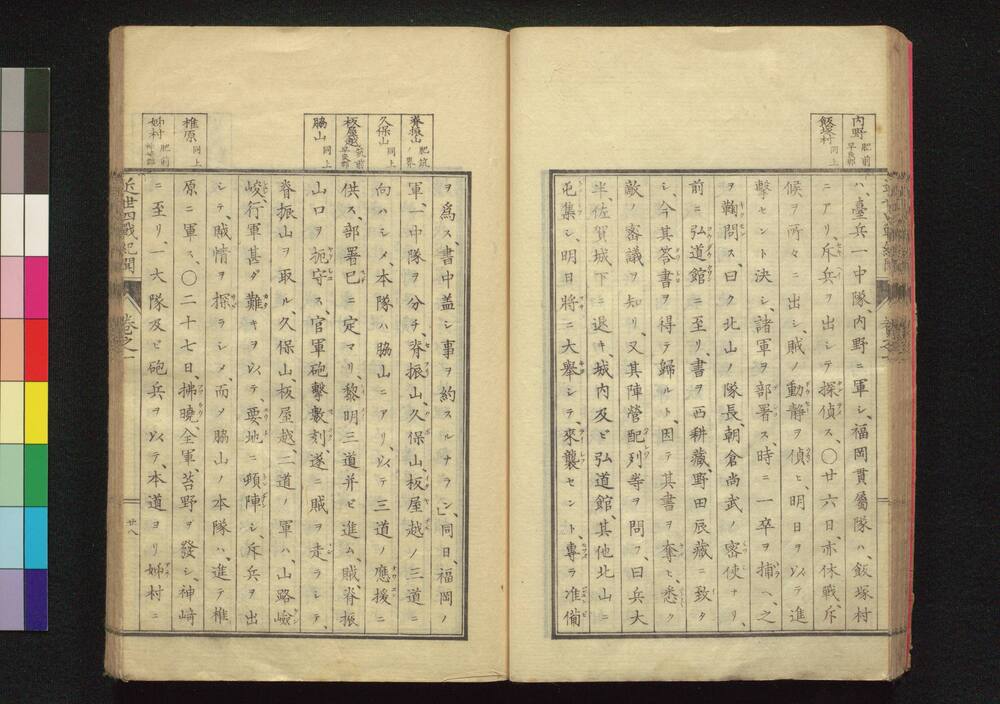 内野 肥前
早良郡
飯塚村 同上
ハ、臺兵一中隊、内野ニ軍シ、福岡貫屬隊ハ、飯塚村
ニアリ、斥兵ヲ出シテ探偵ス、〇廿六日、亦休戰、斥
候ヲ所々ニ出シ、賊ノ動静ヲ偵ヒ、明日ヲ以テ進
擊セント決シ、諸軍ヲ部署ス、時ニ一卒ヲ捕ヘ、之
ヲ鞠問ス曰ク北山ノ隊長、朝倉尚武ノ密使ナリ、
前ニ弘道館ニ至リ、書ヲ西耕藏、野田辰藏ニ致タ
シ、今其答書ヲ得テ歸ルト、因テ其書ヲ奪ヒ、悉ク
敵ノ審議ヲ知リ、又其陣營配列等ヲ問フ、曰兵大
半、佐賀城下ニ退キ、城内及ビ弘道館、其他北山ニ
屯集シ、明日將ニ大擧シテ、來襲セント、專ラ准備
脊振山 肥筑ノ界
久保山 同上
板屋越 筑前
早良郡
脇山 同上
椎原 同上
姉村 肥前
ヲ爲ス、書中盖シ事ヲ約スルナラン、同日、福岡ノ
軍、一中隊ヲ分チ、脊振山、久保山、板屋越ノ三道ニ
向ハシメ、本隊ハ脇山ニアリ、以テ三道ノ應援ニ
供ス、部署已ニ定マリ、黎明三道并ヒ進ム、賊、脊振
山口ヲ扼守ス、官軍砲擊數刻、遂ニ賊ヲ走ラシテ、
脊振山ヲ取ル、久保山、板屋越、二道ノ軍ハ山路嶮
峻、行軍甚ダ難キヲ以テ、要地ニ頓陣シ、斥兵ヲ出
シテ、賊情ヲ探ラシメ、而ノ脇山ノ本隊ハ、進テ椎
原ニ軍ス、〇二十七日、拂曉、全軍、苔野ヲ發シ、神﨑
ニ至リ、一大隊及ビ砲兵ヲ以テ、本道ヨリ姉村ニ
近世四戰紀聞 卷之一
廿八